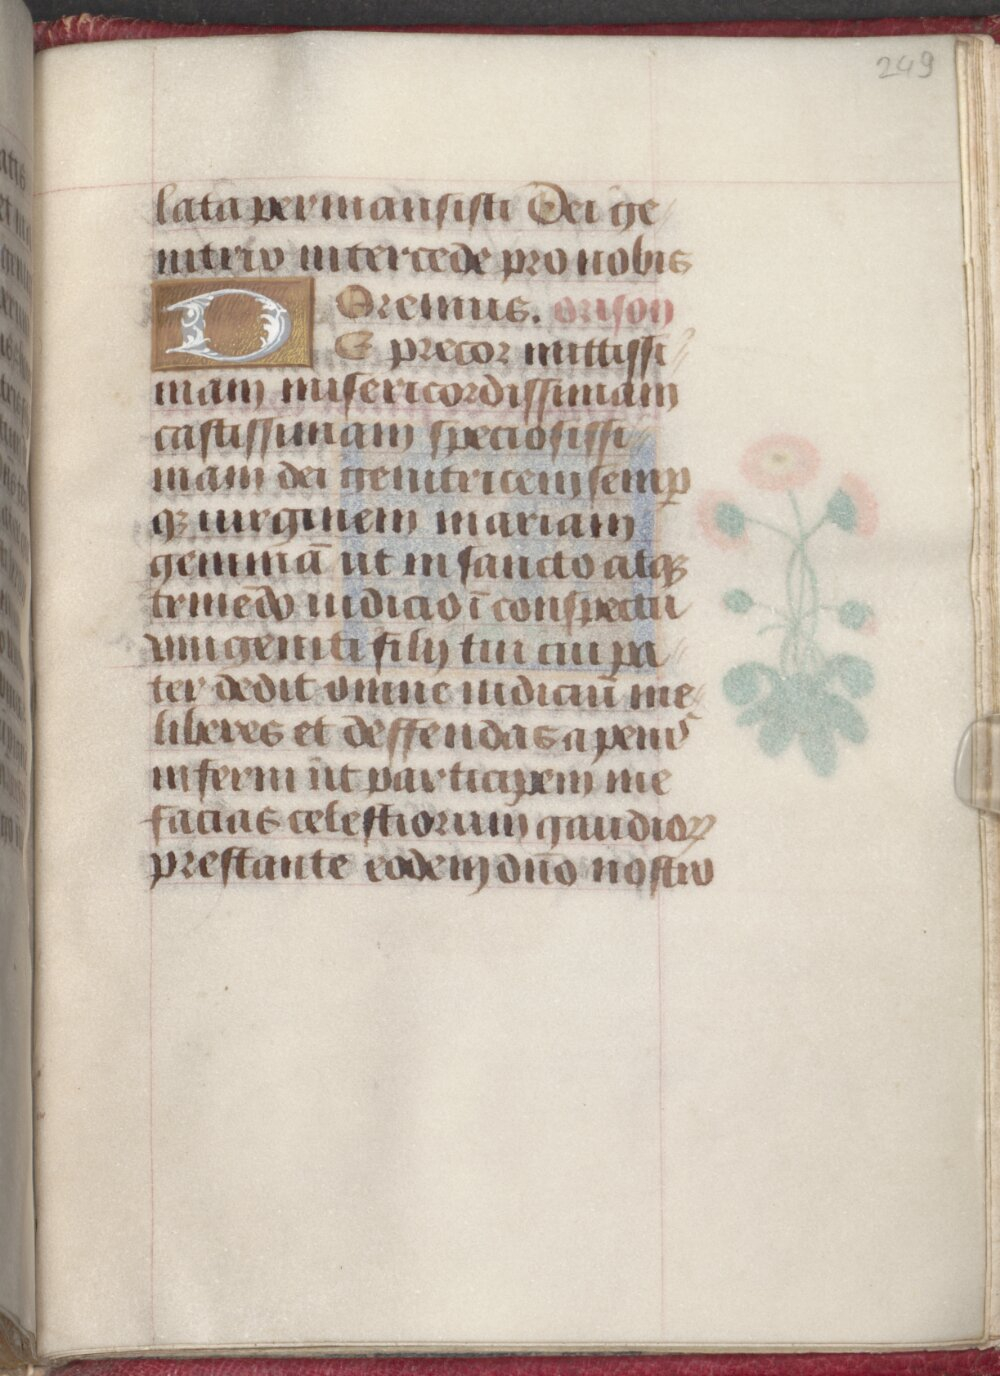 249
lata permansisti Dei ge
nitrix intercede pro nobis
Oremus. orison
DE precor mittissi
mam misericordissimam
castissimam speciosissi
mam dei genitricem semp
qꝫ virginem mariam
gemmā ut in sancto atqꝫ
tremēdo iudicio ī conspectu
unigeniti filij tui cui pa
ter dedit omne iudiciū me
liberes et deffendas a penis
inferni ut participem me
facias celestiorum gaudioꝝ
prestante eodem dn̄o nostro